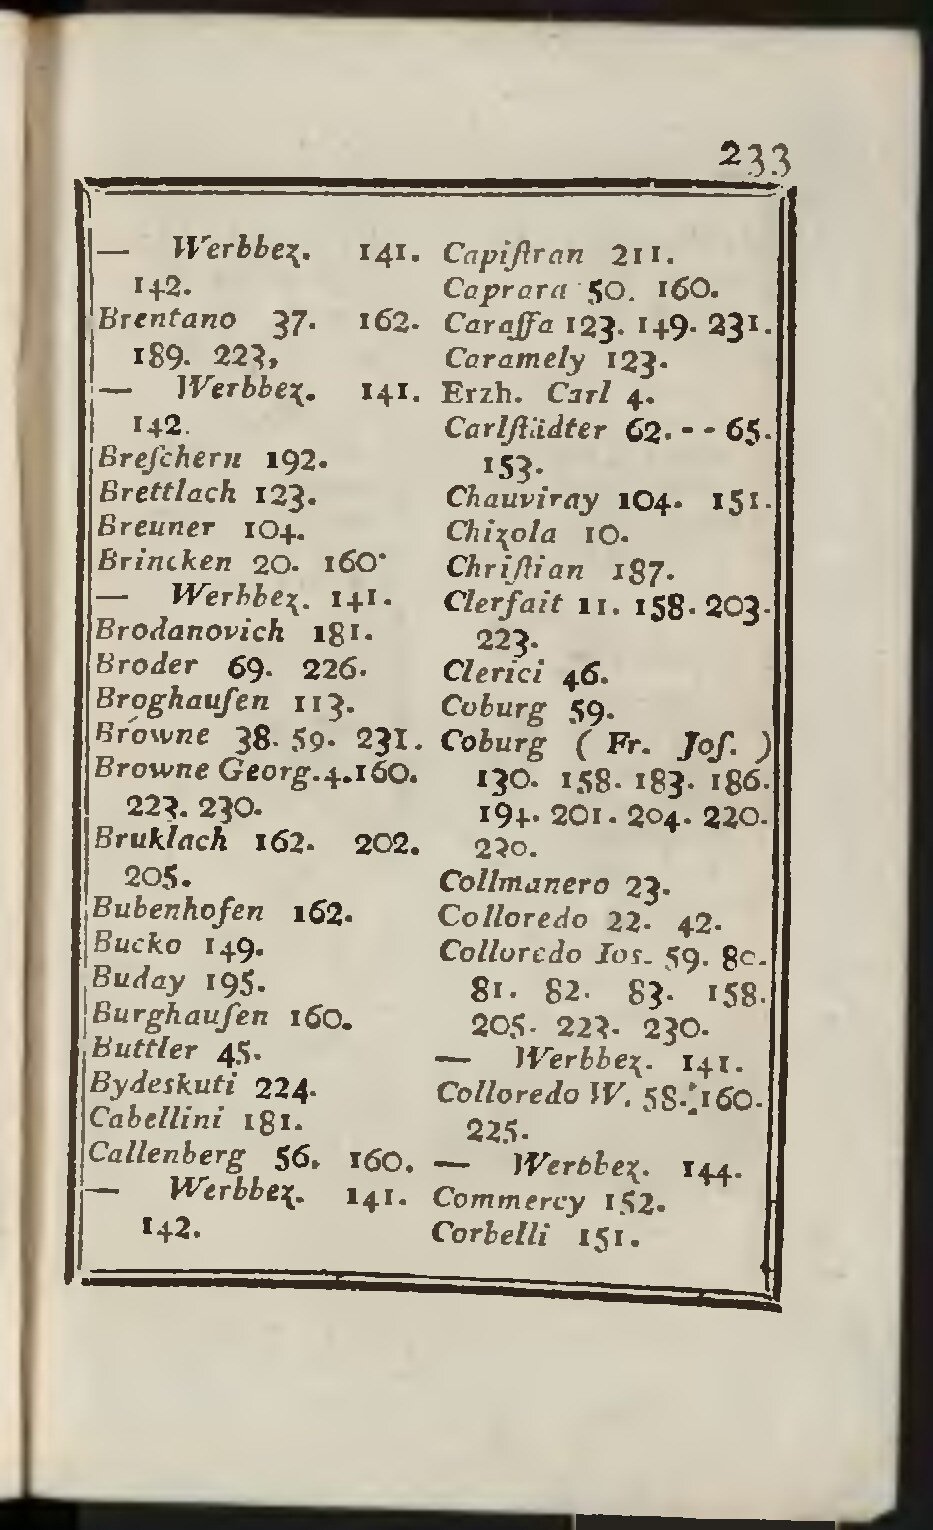 233
— Werbbez. 141.
142.
Brentano 37. 162.
189. 223,
— Werbbez. 141.
142.
Breſchern 192.
Brettlach 123.
Breuner 104.
Brincken 20. 160.
— Werbbez. 141.
Brodanovich 181.
Broder 69. 226.
Broghauſen 113.
Browne 38. 59. 231.
Browne Georg. 4. 160.
223. 230.
Bruklach 162. 202.
205.
Bubenhofen 162.
Bucko 149.
Buday 195.
Burghauſen 160.
Buttler 45.
Bydeskuti 224.
Cabellini 181.
Callenberg 56. 160.
— Werbbez. 141.
142.
Capiſtran 211.
Caprara 50. 160.
Caraffa 123. 149. 231.
Caramely 123.
Erzh. Carl 4.
Carlſtädter 62. - - 65.
153.
Chauviray 104. 151.
Chizola 10.
Chriſtian 187.
Clerfait 11. 158. 203.
223.
Clerici 46.
Coburg 59.
Coburg ( Fr. Joſ. )
130. 158. 183. 186.
194. 201. 204. 220.
230.
Collmanero 23.
Colloredo 22. 42.
Colloredo Ios. 59. 80.
81. 82. 83. 158.
205. 223. 230.
— Werbbez. 141.
Colloredo W. 58. 160.
225.
— Werbbez. 144.
Commercy 152.
Corbelli 151.